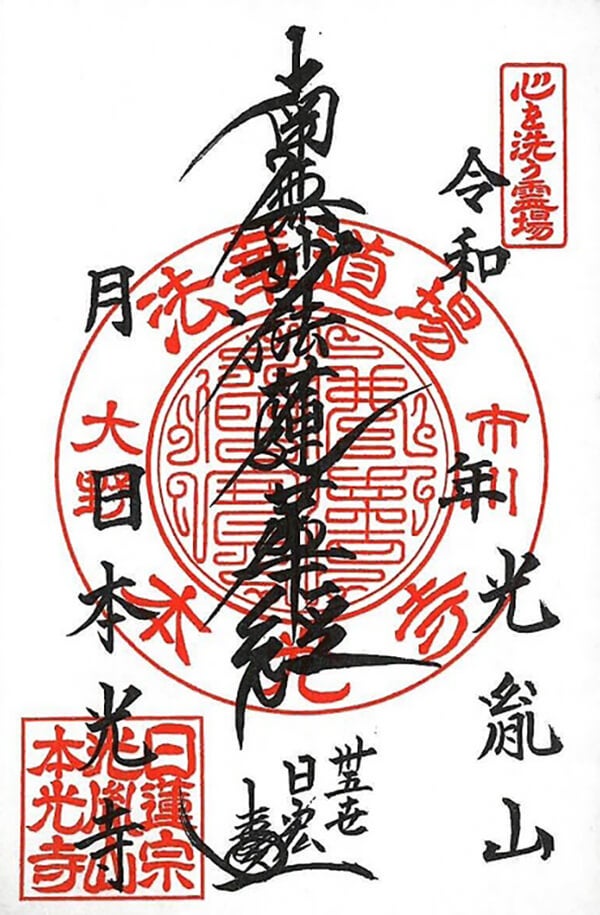 心を洗う霊場
令和　年
光胤山
南無妙法蓮華経
卅五世
日宏
月　日
本光寺
法華道場
市川
大野
本光寺
日蓮宗
光胤山
本光寺